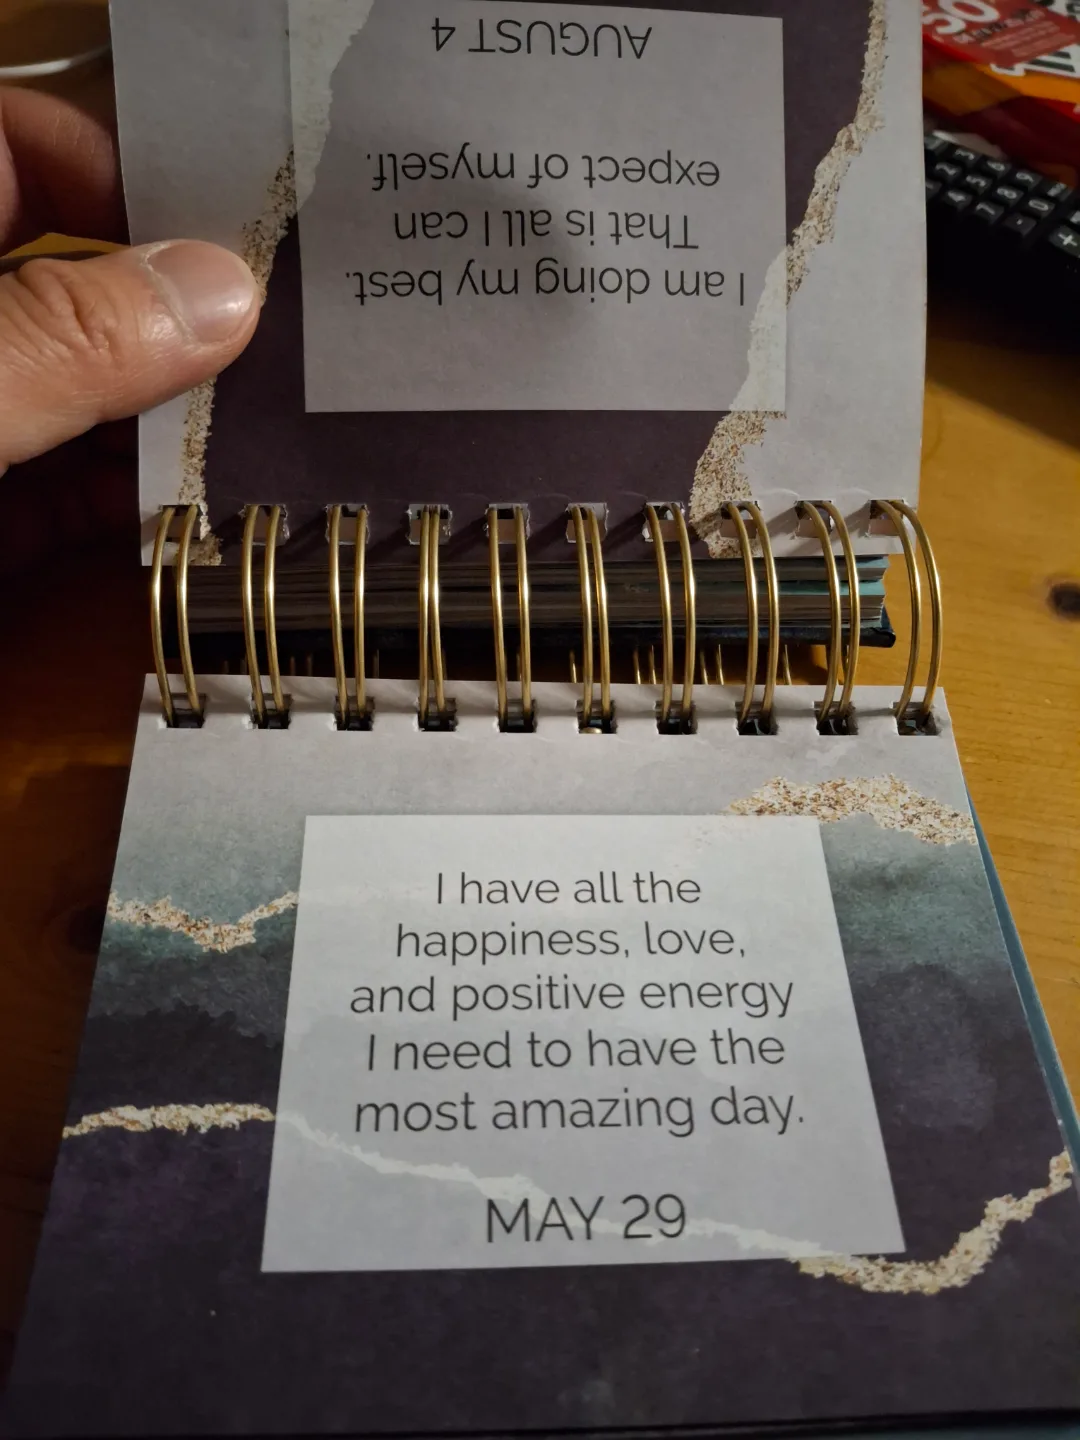 I am doing my best.
That is all I can
expect of myself.
AUGUST 4
I have all the
happiness, love,
and positive energy
I need to have the
most amazing day.
MAY 29